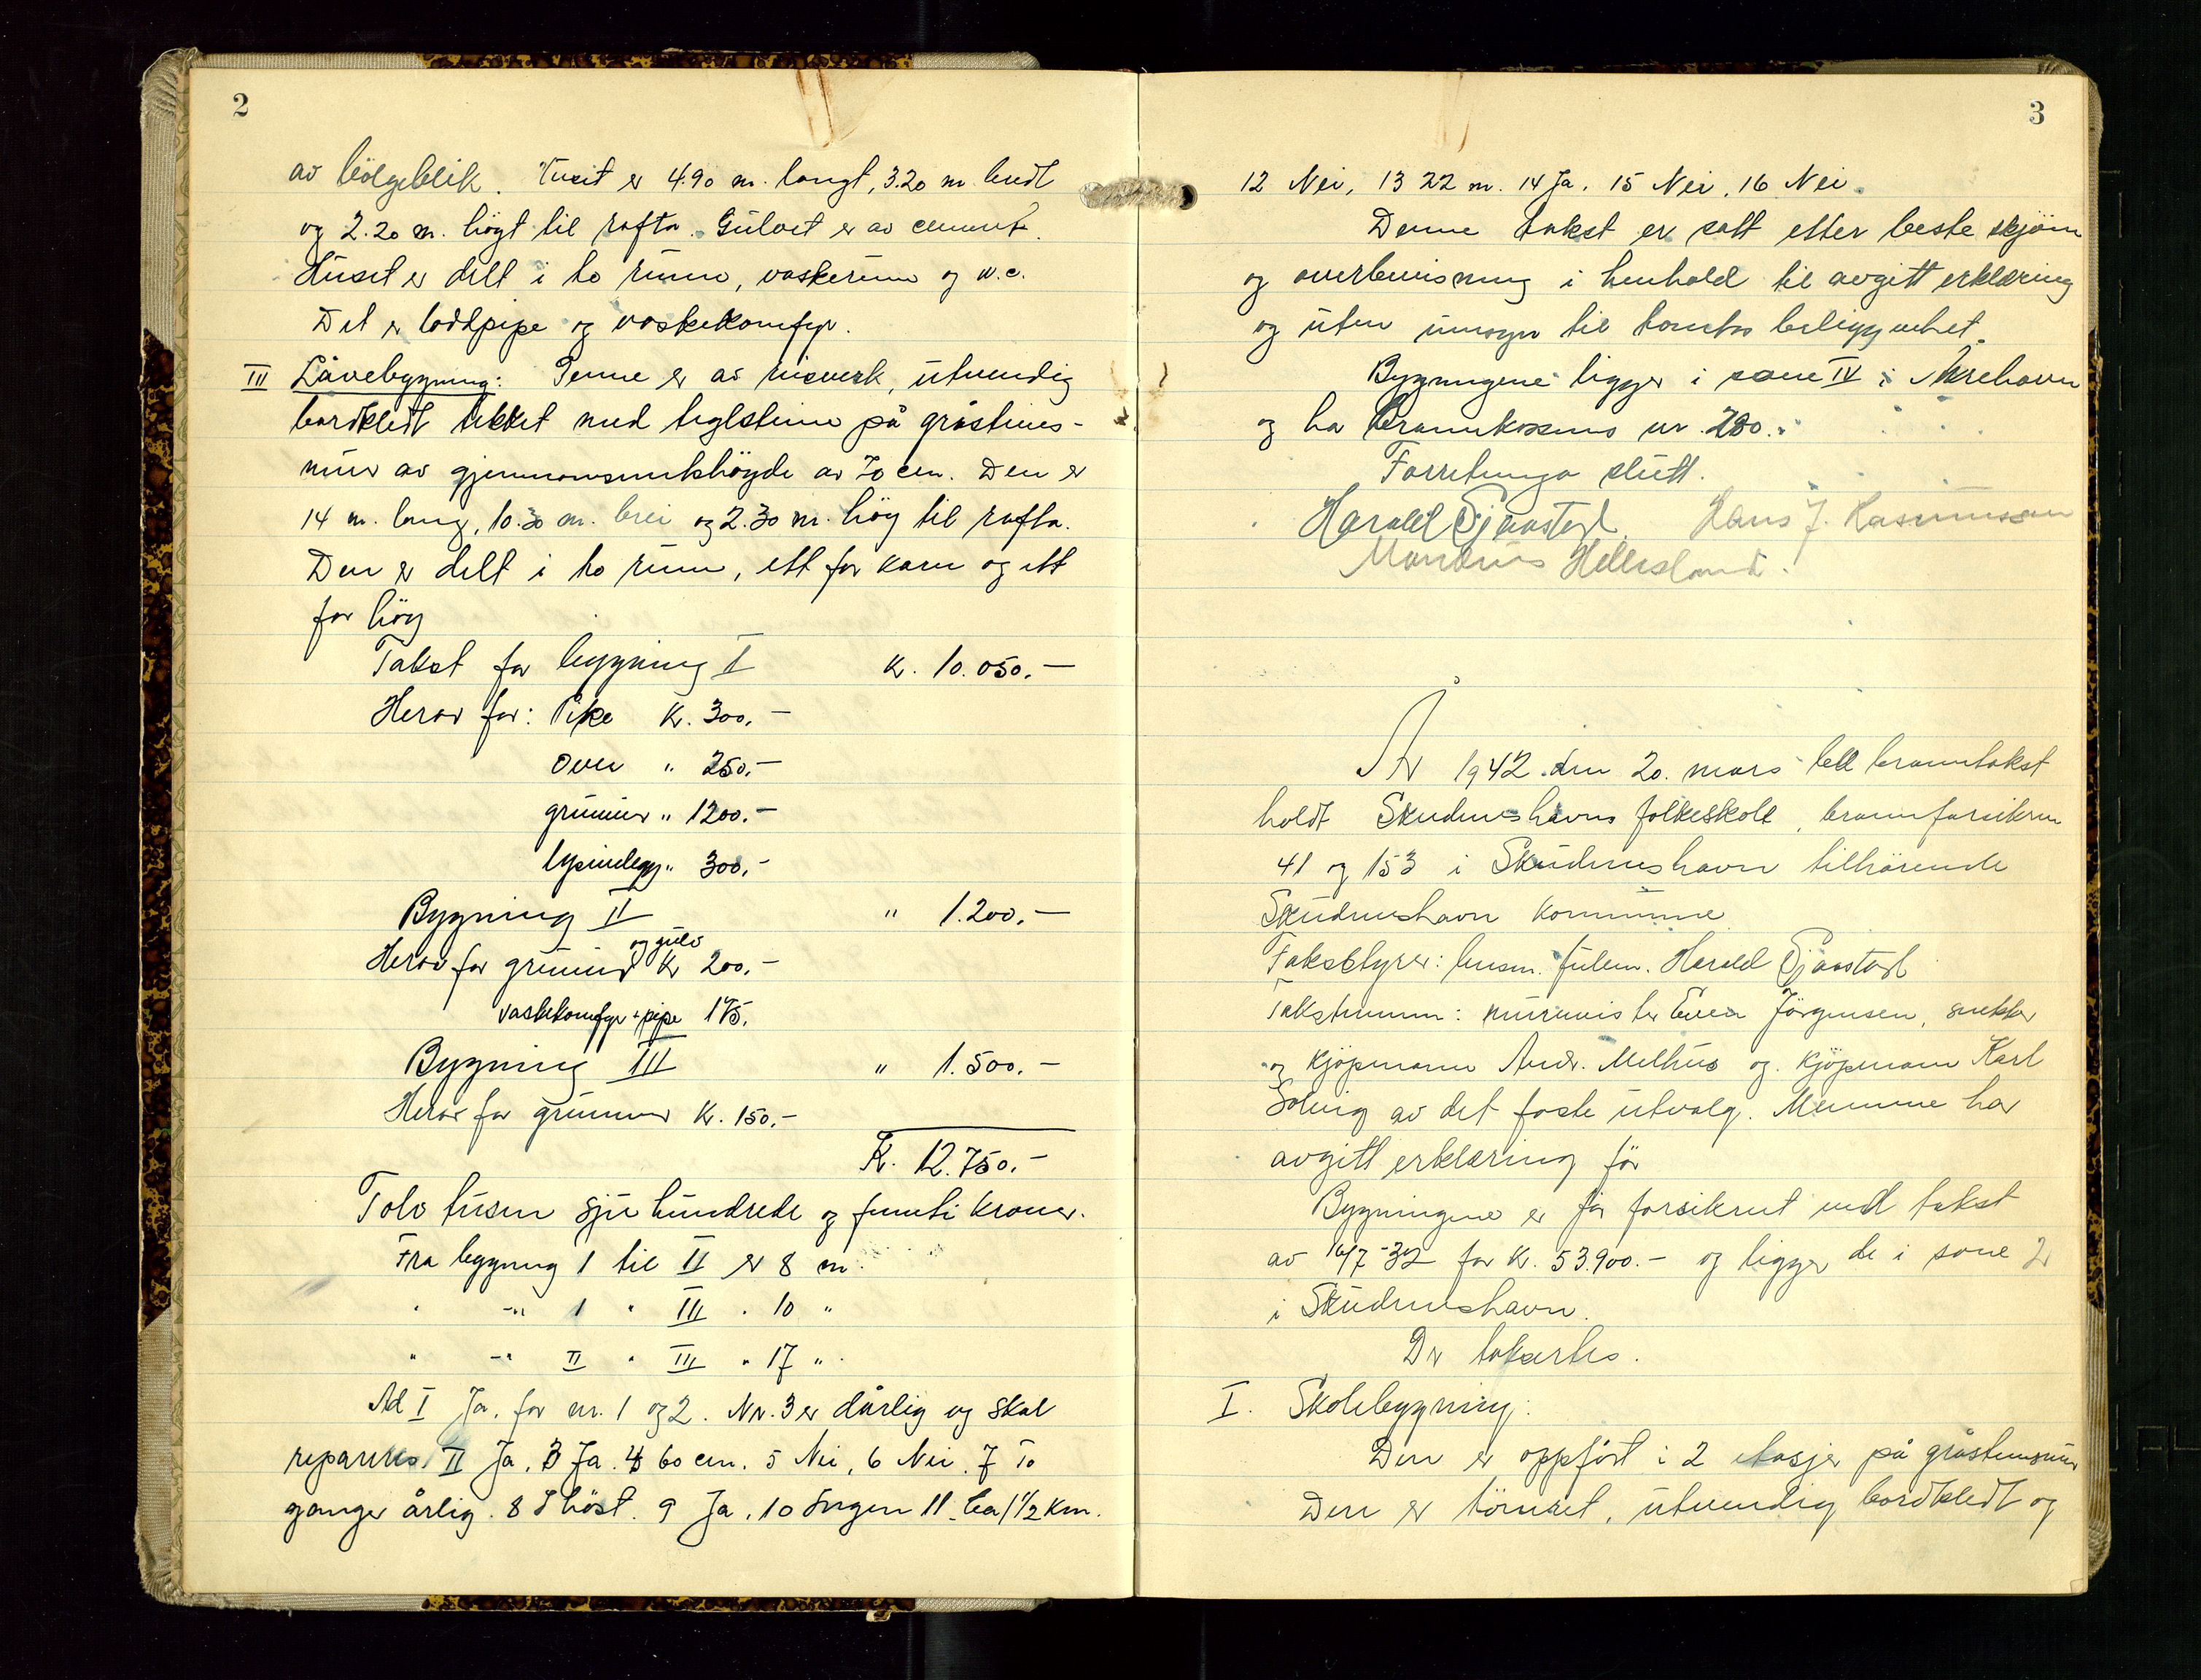 2
av bölgeblik. Huset er 4.90 m. langt, 3.20 m. bredt
og 2.20 m. högt til rafta. Gulvet er av cement.
Huset er delt i to rum, vaskerum og w.c.
Det er loddpipe og vaskekomfyr.
III Låvebygning: Denne er av risverk, utvendig
bordkledt tekket med teglsteine på gråsteins-
mur av gjennomsnitshöyde av 70 cm. Den er
14 m. lang, 10.30 m. brei og 2.30 m. höy til rafta.
Den er delt i to rum, ett for korn og ett
for höy
Takst for bygning I K. 10.050.-
Herav for: Pipe Kr. 300.-
Oven " 250.-
grunmur " 1200.-
lysindlegg " 300.-
Bygning II " 1.200.-
og gulv
Herav for grunmur Kr 200.-
vaskekomfyr + pipe 175.
Bygning III " 1.500.-
Herav for grunmur Kr. 150.-
K. 12.750.-
Tolv tusen sju hundrede og femti kroner.
Fra bygning 1 til II er 8 m.
" -"- 1 " III " 10 "
" -"- II " III " 17 "
Ad I Ja, for nr. 1 og 2. Nr. 3 er dårlig og skal
repareres II Ja, 3 Ja. 4 60 cm. 5 Nei, 6 Nei. 7 To
ganger årlig. 8 I höst. 9 Ja, 10 Ingen 11 ca 1 1/2 km.
3
12 Nei, 13 22 m. 14 Ja. 15 Nei, 16 Nei.
Denne takst er satt etter beste skjönn
og overbevisning i henhold til avgitt erklæring
og uten innsyn til tomtas beliggenhet.
Bygningene ligger i sone IV i Åkrehavn
og har brannkassens nr. 280.
Forretninga slutt.
Harald Gjaasted Hans J. Rasmussen
Mandrus Hellesland.
År 1942 den 20. mars ble branntakst
holdt Skudeneshavns folkeskole, brannforsikrnr
41 og 153 i Skudeneshavn tilhörende
Skudeneshavn kommune
Takstbyrer: lensm. fullm. Harald Gjaasted
Takstmenn: murmester Jörgensen, snekker
og kjöpmann Andr. Melhus og kjöpmann Karl
Solvig av det faste utvalg. Mennene har
avgitt erklæring för
Bygningene er för forsikret ved takst
av 16/7-32 for Kr. 53.900.- og ligger de i sone 2
i Skudeneshavn.
De takseres.
I. Skolebygning:
Den er oppfört i 2 etasjer på gråstensmur
Den er tömret, utvendig bordkledt og